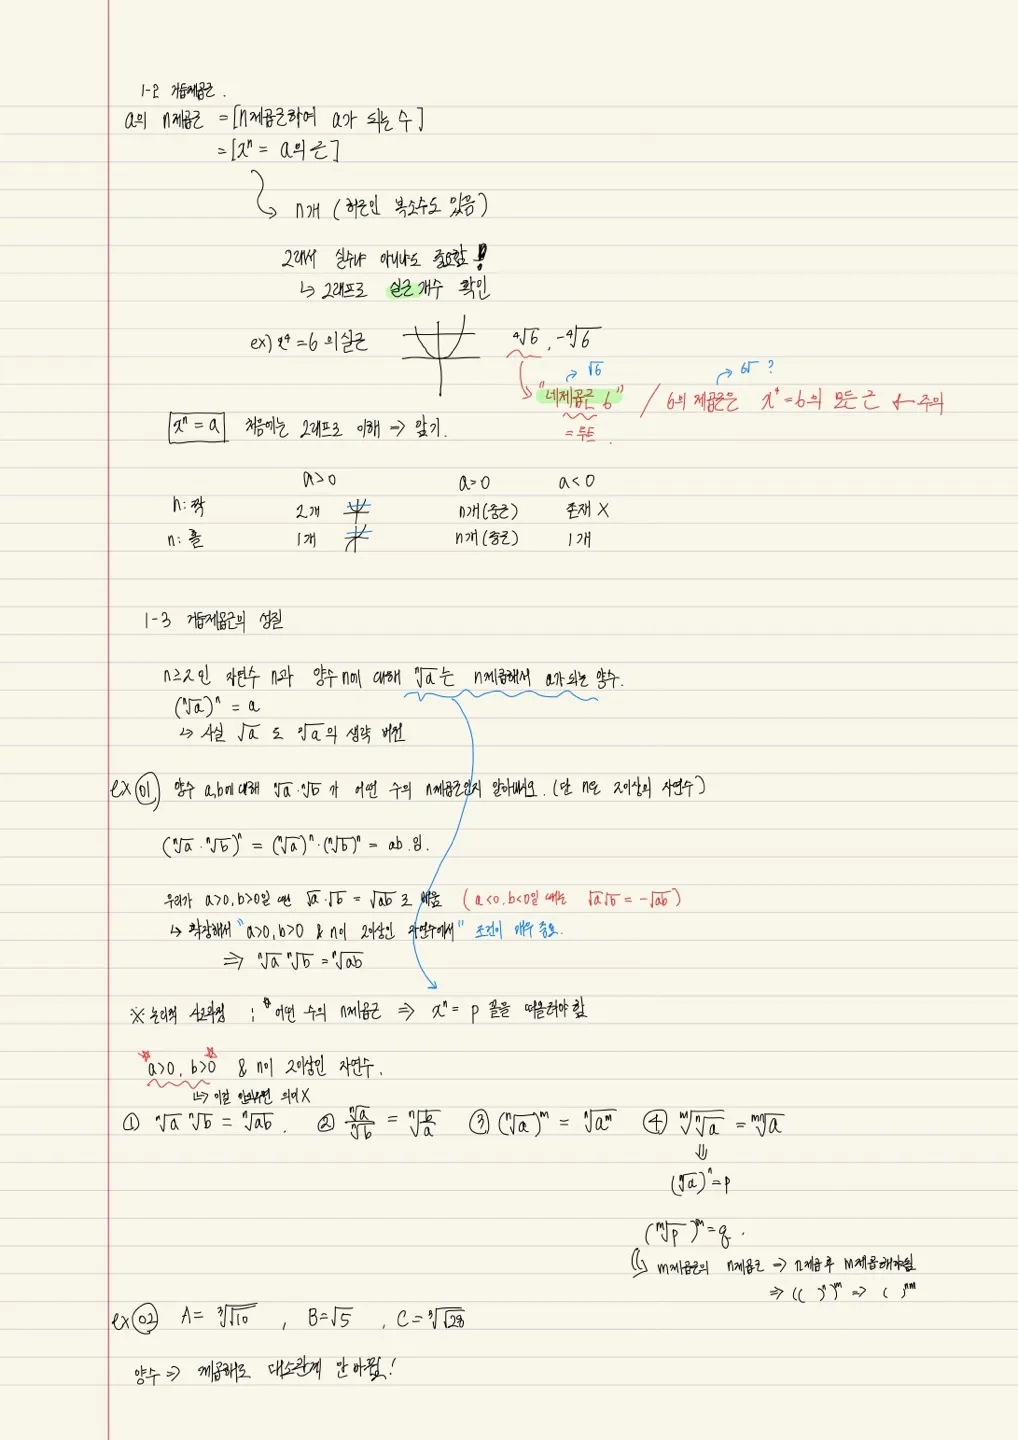 1-2 거듭제곱근.
a의 n제곱근 = [n제곱근하여 a가 되는 수]
= [xⁿ = a의 근]
n개 (허근인 복소수도 있음)
그래서 실수냐 아니냐도 중요함!
↳ 그래프로 실근 개수 확인
ex) x⁴=6 의 실근 ⁴√6, -⁴√6
→ √6 → 6√ ?
"네제곱근 6" / 6의 제곱근은 x⁴=6의 모든 근 ← 주의
= 루트
xⁿ = a 처음에는 그래프로 이해 => 암기.
a>0 a=0 a<0
n: 짝 2개 n개(중근) 존재 X
n: 홀 1개 n개(중근) 1개
1-3 거듭제곱근의 성질
n≥2인 자연수 n과 양수 n에 대해 ⁿ√a는 n제곱해서 a가 되는 양수.
(ⁿ√a)ⁿ = a
↳ 사실 √a 도 ²√a의 생략 버전
ex 01 양수 a,b에 대해 ⁿ√a·ⁿ√b가 어떤 수의 n제곱근인지 말하세요. (단 n은 2이상의 자연수)
(ⁿ√a·ⁿ√b)ⁿ = (ⁿ√a)ⁿ·(ⁿ√b)ⁿ = ab.임.
우리가 a>0, b>0일 때만 √a·√b = √ab로 배움 (a<0, b<0일 때는 √a√b = -√ab)
↳ 확장해서 "a>0, b>0 & n이 2이상인 자연수에서" 조건이 매우 중요.
⇒ ⁿ√a ⁿ√b = ⁿ√ab
※ 논리적 사고과정 ; 어떤 수의 n제곱근 ⇒ xⁿ = p 꼴을 떠올려야 함
a>0, b>0 & n이 2이상인 자연수.
↳ 이걸 안외우면 의미X
① ⁿ√a ⁿ√b = ⁿ√ab. ② ⁿ√a/ⁿ√b = ⁿ√b/a ③ (ⁿ√a)ᵐ = ⁿ√aᵐ ④ ᵐ√ⁿ√a = ᵐⁿ√a
⇓
(ⁿ√a)ⁿ = p
(ᵐ√p)ᵐ = q.
m제곱근의 n제곱근 => n제곱후 m제곱해야됨
=> (( )ⁿ)ᵐ => ( )ⁿᵐ
ex 02 A = ³√√10, B=√5, C = ³√√28
양수 => 제곱해도 대소관계 안 바뀜!